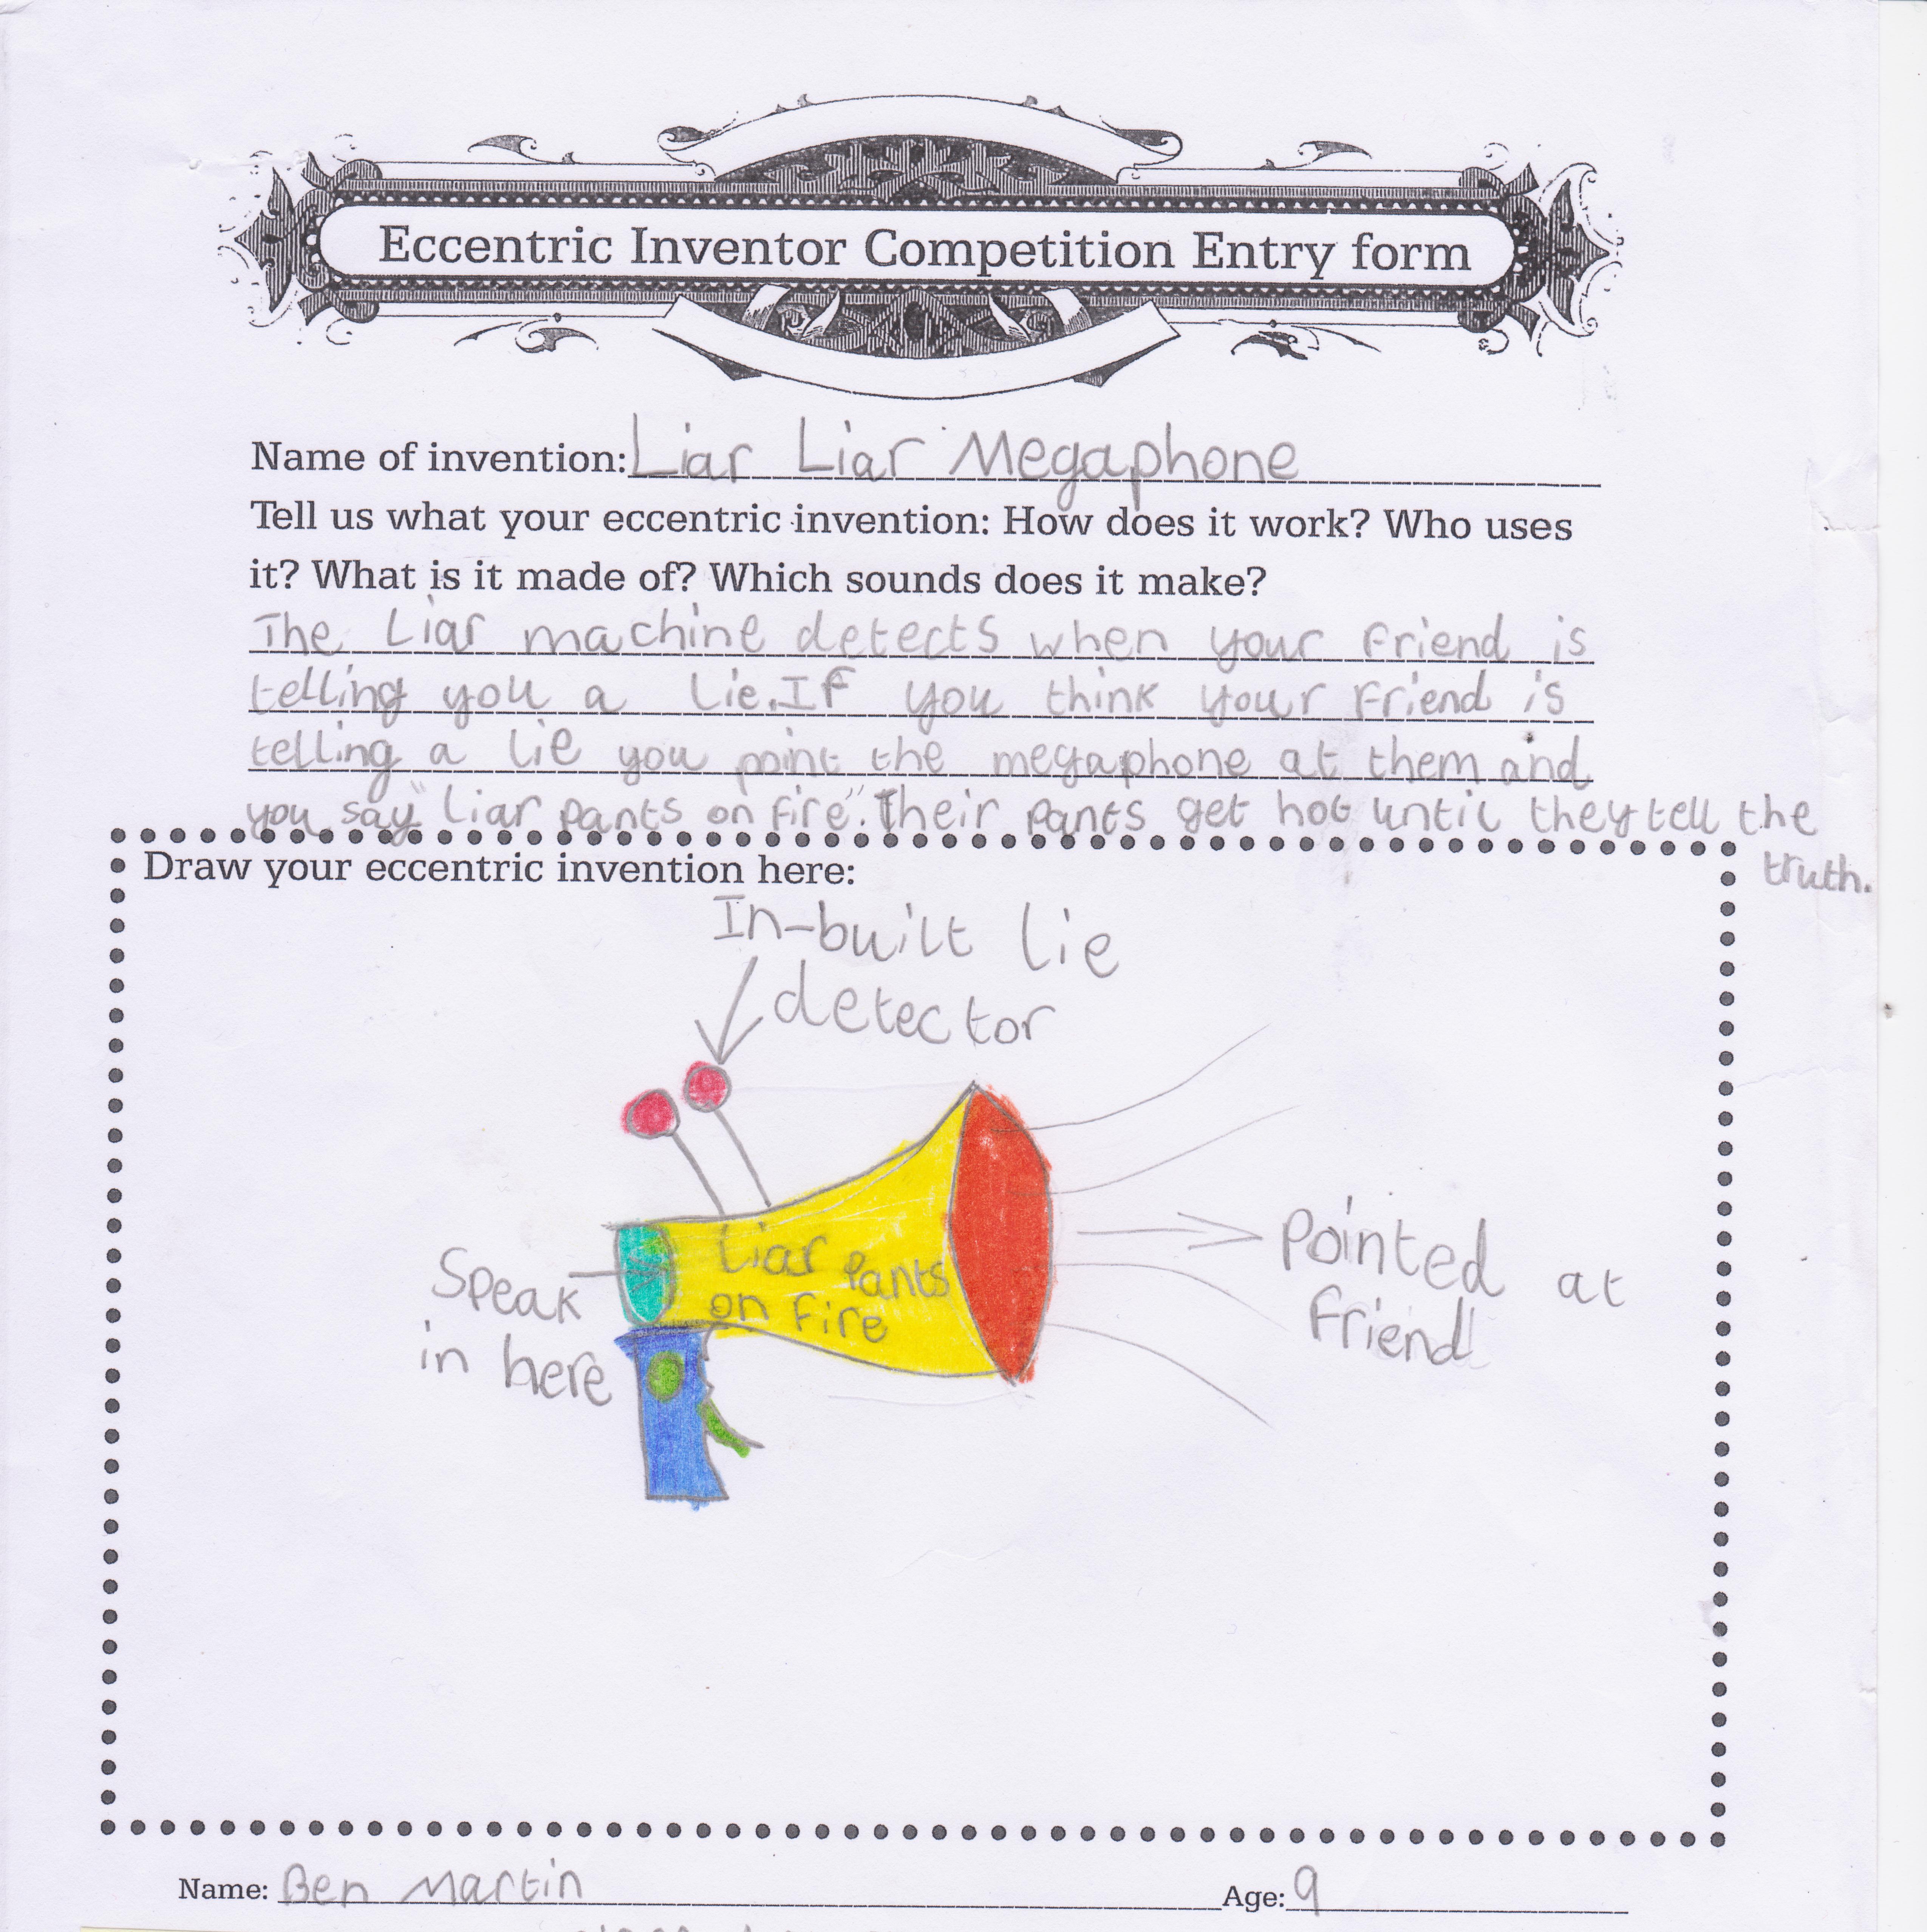 Eccentric Inventor Competition Entry form
Name of invention: Liar Liar Megaphone
Tell us what your eccentric invention: How does it work? Who uses
it? What is it made of? Which sounds does it make?
The Liar machine detects when your friend is
telling you a lie. If you think your friend is
telling a lie you point the megaphone at them and
you say "liar pants on fire". Their pants get hot until they tell the
truth.
Draw your eccentric invention here:
In-built lie
detector
Liar Pants
on fire
Speak
in here
Pointed at
friend
Name: Ben Martin Age: 9